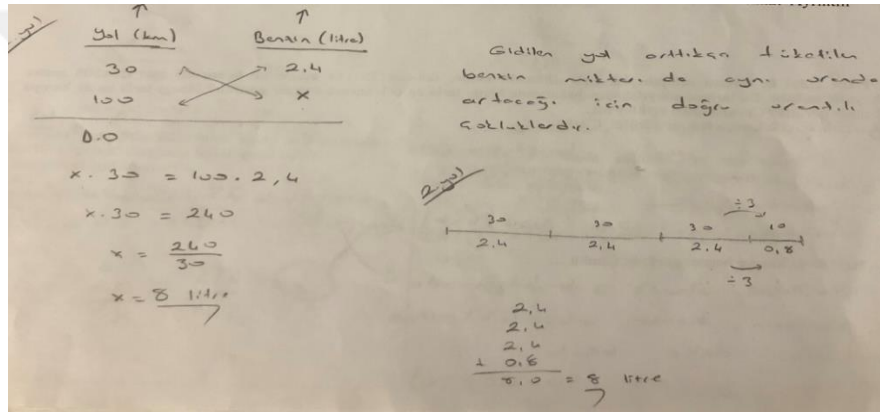 1. yol)
↑ ↑
Yol (km) Benzin (litre)
30 2,4
100 x
D.O
x . 30 = 100 . 2,4
x . 30 = 240
x = 240
30
x = 8 litre
Gidilen yol arttıkça tüketilen
benzin miktarı da aynı oranda
artacağı için doğru orantılı
çokluklardır.
2. yol)
÷3
30 30 30 10
2,4 2,4 2,4 0,8
÷3
2,4
2,4
2,4
+ 0,8
8,0 = 8 litre